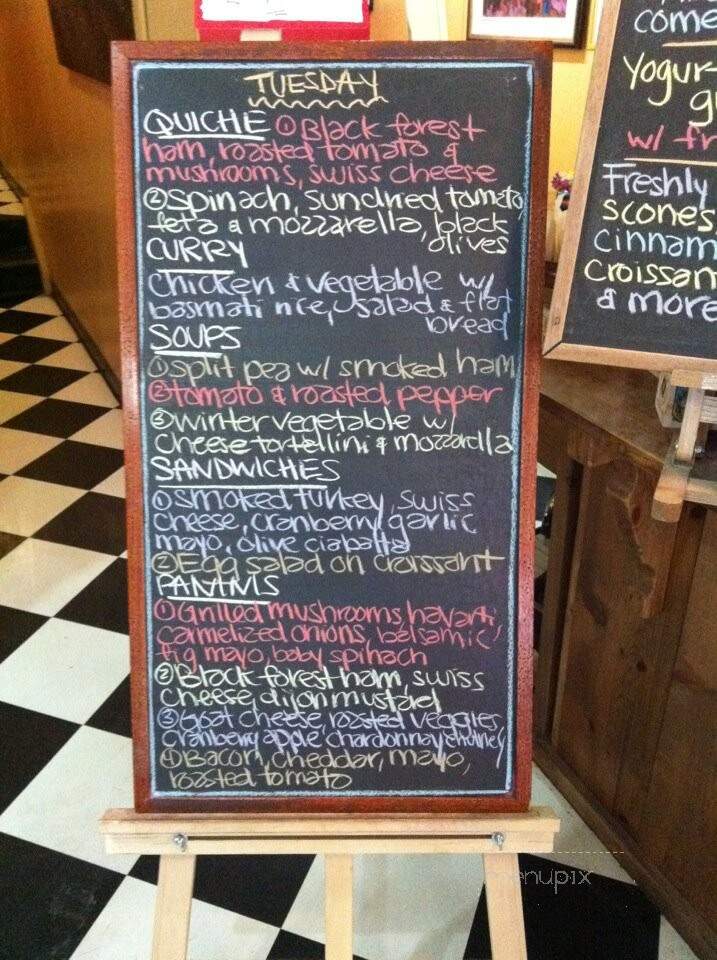 TUESDAY
QUICHE ① Black forest
ham, roasted tomato &
mushrooms, swiss cheese
② Spinach, sundried tomato,
feta & mozzarella, black
olives
CURRY
chicken & vegetable w/
basmati rice, salad & flat
bread
SOUPS
① split pea w/ smoked ham
② tomato & roasted pepper
③ winter vegetable w/
cheese tortellini & mozzarella
SANDWICHES
① smoked turkey, swiss
cheese, cranberry garlic
mayo, olive ciabatta
② Egg salad on croissant
PANINIS
① Grilled mushrooms, havarti,
carmelized onions, balsamic,
fig mayo, baby spinach
② Black forest ham, swiss
cheese, dijon mustard
③ Goat cheese, roasted veggies,
cranberry apple chardonnay chutney
④ Bacon, cheddar, mayo,
roasted tomato
come
Yogur-
g
w/ fr
Freshly
scones,
cinnam
croissan
& more
menupix